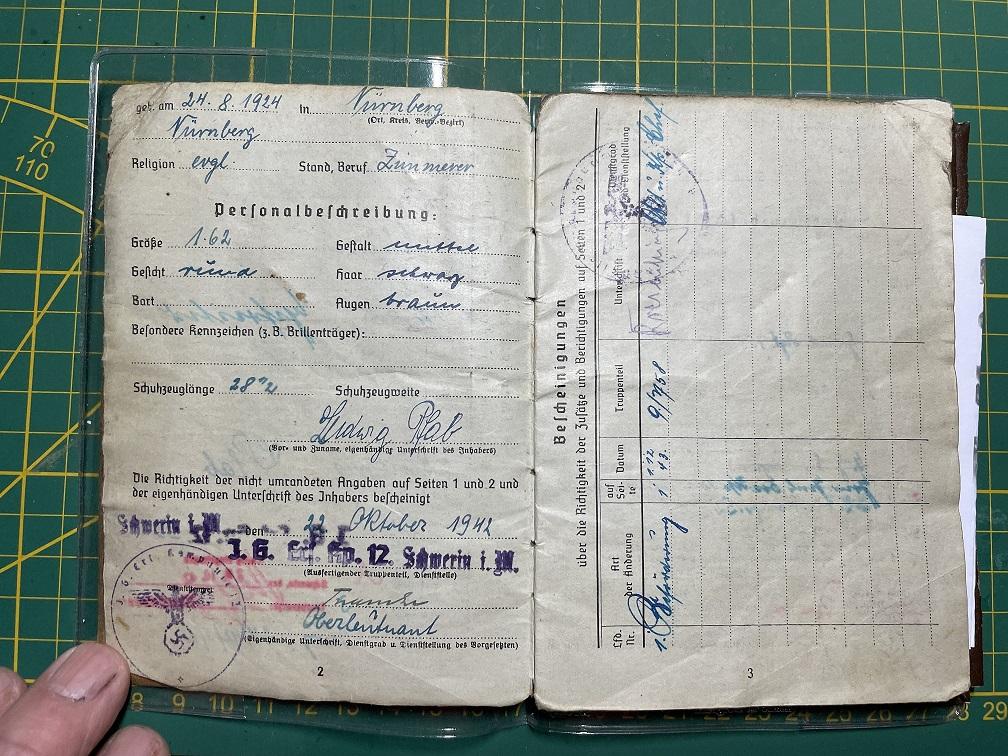 geb. am 24. 8. 1924 in Nürnberg
(Ort, Kreis, Verw.-Bezirk)
Nürnberg
Religion evgl Stand, Beruf Zimmerer
Personalbeſchreibung:
Größe 1.62 Geſtalt mittel
Geſicht rund Haar schwarz
Bart Augen braun
Beſondere Kennzeichen (z. B. Brillenträger):
Schuhzeuglänge 28 ½ Schuhzeugweite
Ludwig Pfab
(Vor- und Zuname, eigenhändige Unterſchrift des Inhabers)
Die Richtigkeit der nicht umrandeten Angaben auf Seiten 1 und 2 und
der eigenhändigen Unterſchrift des Inhabers beſcheinigt
Schwerin i. M. den 22 Oktober 1942
J. G. Erſ. Kp. 12. Schwerin i. M.
(Ausfertigender Truppenteil, Dienſtſtelle)
Dienſtſtempel
Oberleutnant
(Eigenhändige Unterſchrift, Dienſtgrad u. Dienſtſtellung des Vorgeſetzten)
2
Beſcheinigungen
über die Richtigkeit der Zuſätze und Berichtigungen auf Seiten 1 und 2
Lfd. Nr.
Art der Änderung
auf Sei- te
Datum
Truppenteil
Unterſchrift
Dienſtgrad und Dienſtſtellung
1. Beförderung 1 1.12. 43.
3